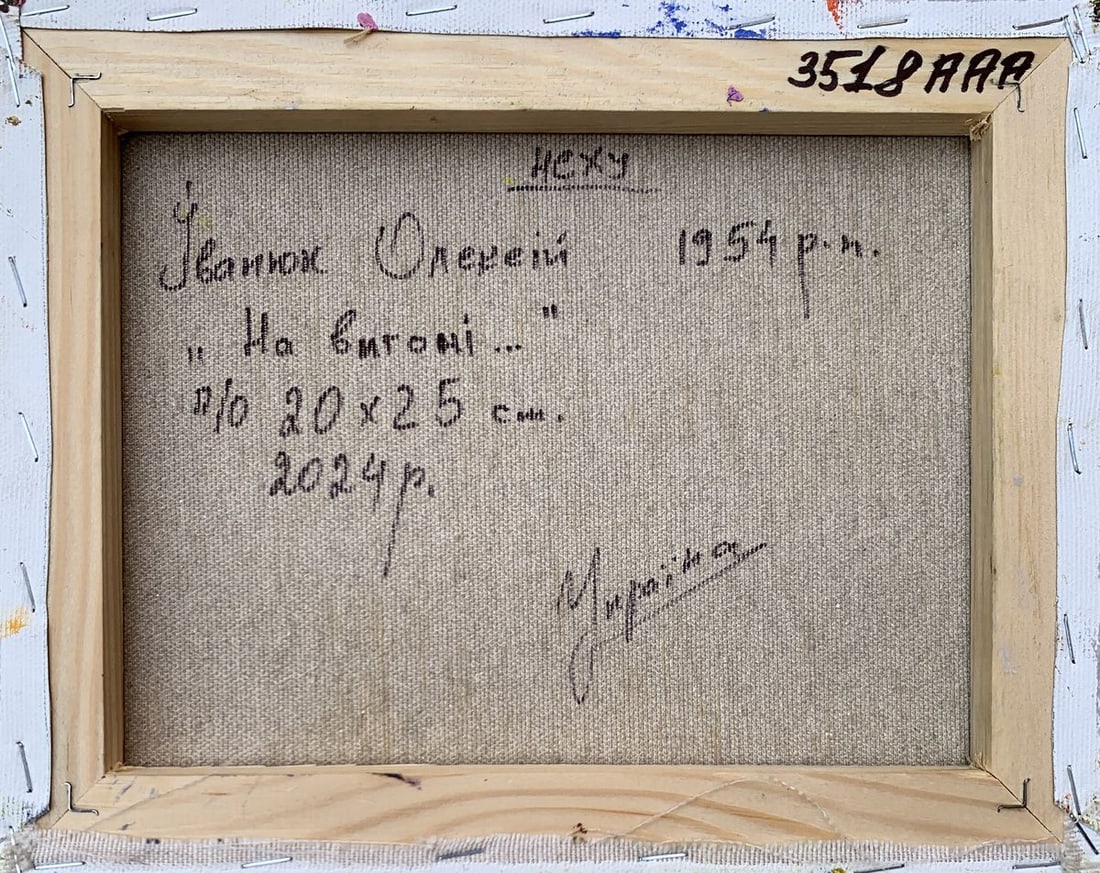 3518 AAA
НСХУ
Іванюк Олексій 1954 р.н.
„ На вигоні... "
п/о 20х25 см.
2024 р.
Україна